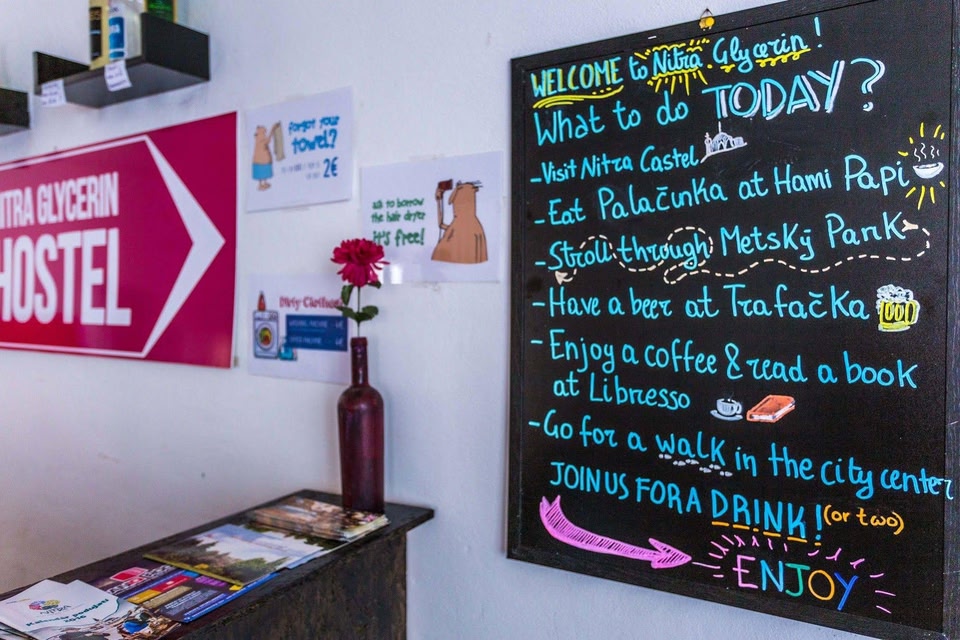 NITRA GLYCERIN
HOSTEL
forgot your
towel?
2€
ask to borrow
the hair dryer
it's free!
Dirty Clothes
WELCOME to Nitra Glycerin!
What to do TODAY?
-Visit Nitra Castel
-Eat Palačinka at Hami Papi
-Stroll through Metský Park
-Have a beer at Trafačka
-Enjoy a coffee & read a book
at Libresso
-Go for a walk in the city center
JOIN US FOR A DRINK! (or two)
ENJOY